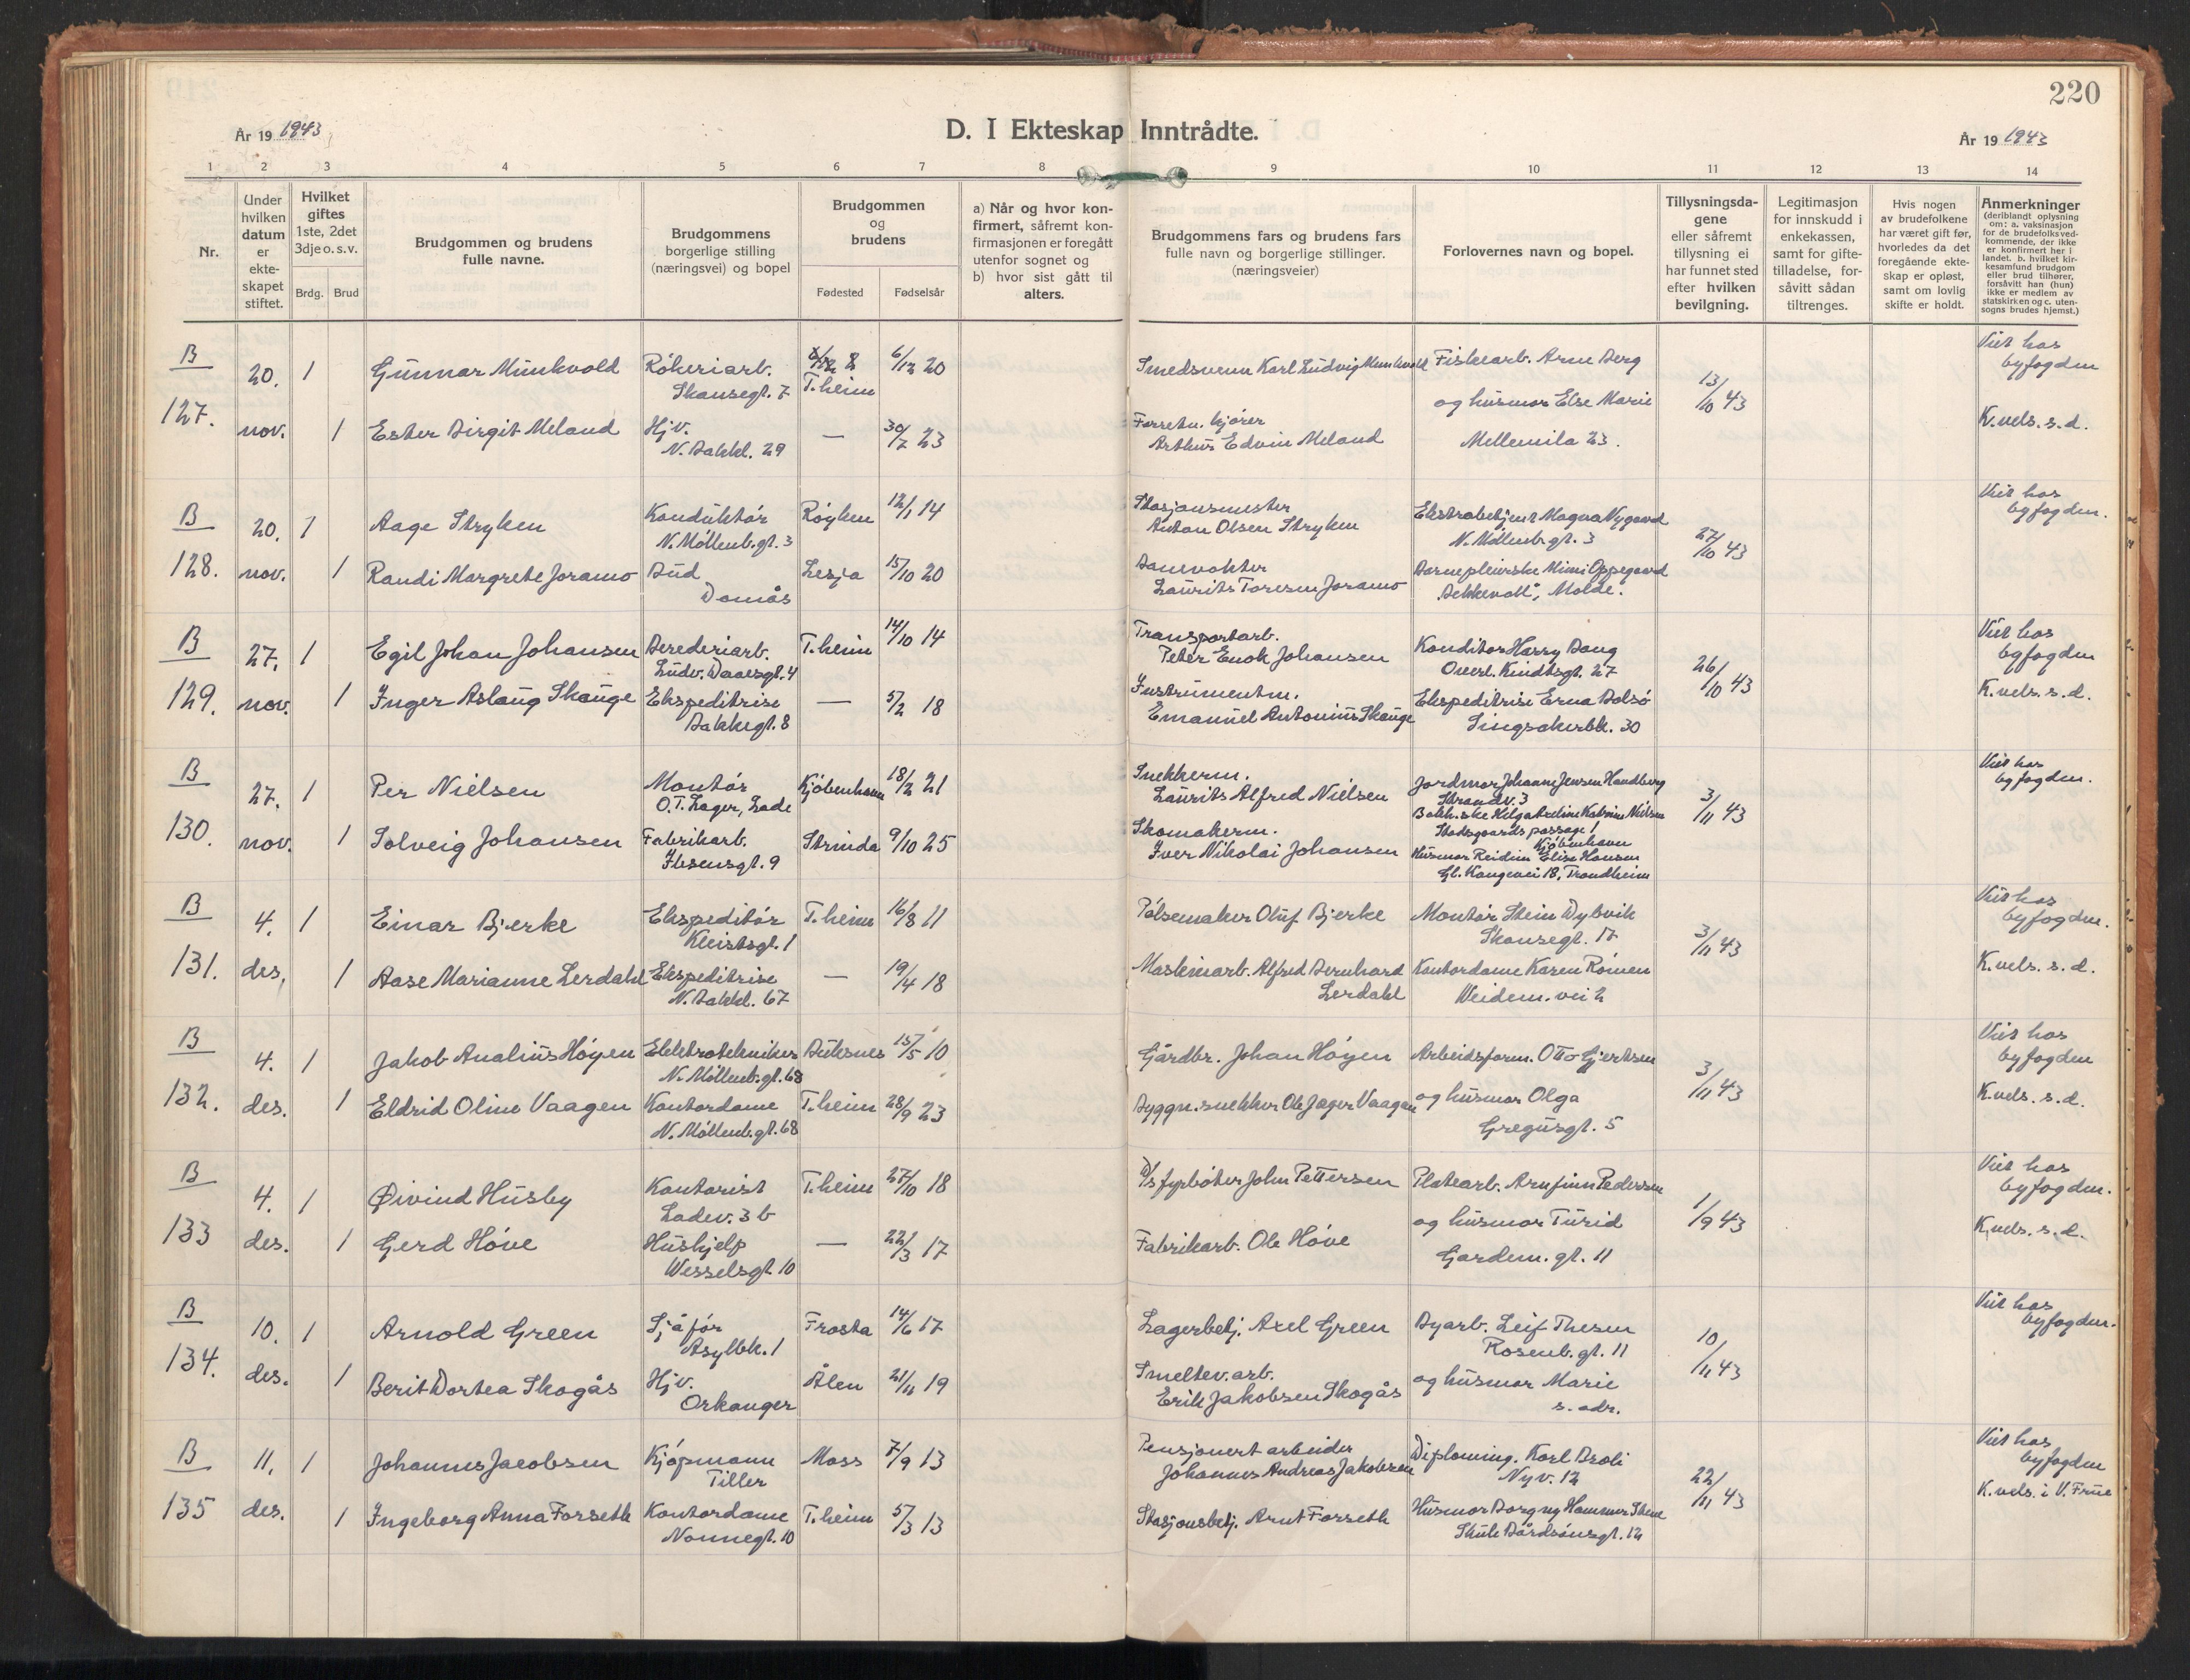 220
År 19 1943
D. I Ekteskap Inntrådte.
År 19 1943
1 2 3 4 5 6 7 8 9 10 11 12 13 14
Nr.
Under hvilken datum er ekte-skapet stiftet.
Hvilket giftes 1ste, 2det 3dje o.s.v.
Brdg. Brud
Brudgommen og brudens fulle navne.
Brudgommens borgerlige stilling (næringsvei) og bopel
Brudgommen og brudens
Fødested Fødselsår
a) Når og hvor kon-firmert, såfremt kon-firmasjonen er foregått utenfor sognet og
b) hvor sist gått til alters.
Brudgommens fars og brudens fars fulle navn og borgerlige stillinger. (næringsveier)
Forlovernes navn og bopel.
Tillysningsda-gene eller såfremt tillysning ei har funnet sted efter hvilken bevilgning.
Legitimasjon for innskudd i enkekassen, samt for gifte-tilladelse, for-såvitt sådan tiltrenges.
Hvis nogen av brudefolkene har været gift før, hvorledes da det foregående ekte-skap er opløst, samt om lovlig skifte er holdt.
Anmerkninger (deriblandt oplysning om: a. vaksinasjon for de brudefolks ved-kommende, der ikke er konfirmert her i landet. b. hvilket kir-kesamfund brudgom eller brud tilhører, forsåvitt han (hun) ikke er medlem av statskirken og c. uten-sogns brudes hjemst.)
B 20. 1 Gunnar Munkvold Røkeriarb. Skansegt. 7 T.heim 6/12 20 Smedsvenn Karl Ludvig Munkvold Fiskearb. Arne Berg 13/10 43 Viet hos byfogden
127. nov. 1 Ester Birgit Meland Hjv. N. Bakkl. 29 — 30/7 23 Forretn. kjører Arthur Edvin Meland og husmor Else Marie Mellemila 23. K.vels. s. d.
B 20. 1 Aage Stryken Konduktør N. Møllenb.gt. 3 Røyken 12/1 14 Stasjonsmester Anton Olsen Stryken Ekstrabetjent Magna Nygaard N. Møllenb.gt. 3 27/10 43 Viet hos byfogden.
128. nov. 1 Randi Margrete Joramo Bud Domås Lesja 15/10 20 Banevokter Laurits Toresen Joramo Barnepleierske Mimi Oppegaard Bekkevoll", Molde.
B 27. 1 Egil Johan Johansen Berederiarb. Ludv. Daaesgt. 4 T.heim 14/10 14 Transportarb. Peter Enok Johansen Konditor Harry Dang Overl. Kindtsgt. 27 26/10 43 Viet hos byfogden
129. nov. 1 Inger Aslaug Skauge Ekspeditrise Bakkegt. 8 — 5/2 18 Instrumentm. Emanuel Antonius Skauge Ekspeditrise Erna Bolsø Singsakerbk. 30 K.vels. s. d.
B 27. 1 Per Nielsen Montør O.T. Lager, Lade Kjøbenhavn 18/2 21 Snekkerm. Laurits Alfred Nielsen Jordmor Johanne Jensen Handberg Strandv. 3 3/11 43 Viet hos byfogden.
130. nov. 1 Solveig Johansen Fabrikarb. Ibsensgt. 9 Strinda 9/10 25 Skomakerm. Iver Nikolai Johansen Helga Axeline Katrine Nielsen Stadsgaards passage 1 Kjøbenhavn
Husmor Reidun Elise Hansen Gl. Kongevei 18, Trondheim
B 4. 1 Einar Bjerke Ekspeditør Kleistsgt. 1 T.heim 16/8 11 Pølsemaker Oluf Bjerke Montør Stein Dybvik Skansegt. 17 3/11 43 Viet hos byfogden.
131. des. 1 Aase Marianne Lerdahl Ekspeditrise N. Bakkl. 67 — 19/4 18 Maskinarb. Alfred Bernhard Lerdahl Kontordame Karen Rømen Weidem. vei 2 K.vels. s. d.
B 4. 1 Jakob Analius Høyen Elektrotekniker N. Møllenb.gt. 68 Buksnes 15/5 10 Gårdbr. Johan Høyen Arbeidsform. Otto Gjertsen 3/11 43 Viet hos byfogden
132. des. 1 Eldrid Oline Vaagen Kontordame N. Møllenb.gt. 68 T.heim 28/9 23 Byggn. snekker Ole Jager Vaagan og husmor Olga Gregusgt. 5 K.vels. s. d.
B 4. 1 Øivind Husby Kontorist Ladev. 3 b T.heim 27/10 18 D/s fyrbøter John Pettersen Platearb. Arnfinn Pedersen 1/9 43 Viet hos byfogden.
133 des. 1 Gerd Høve Hushjelp Wesselsgt. 10 — 22/3 17 Fabrikarb. Ole Høve og husmor Turid Gardem. gt. 11 K.vels. s. d.
B 10. 1 Arnold Green Sjåfør Asylbk. 1 Frosta 14/6 17 Lagerbetj. Axel Green Byarb. Leif Thesen Rosenb. gt. 11 10/11 43 Viet hos byfogden.
134. des. 1 Berit Dortea Skogås Hjv. Orkanger Ålen 21/11 19 Smeltev. arb. Erik Jakobsen Skogås og husmor Marie s. adr.
B 11. 1 Johannes Jacobsen Kjøpmann Tiller Moss 7/9 13 Pensjonert arbeider Johannes Andreas Jakobsen Diploming. Karl Broli Nyv. 12 22/11 43 Viet hos byfogden
135 des. 1 Ingeborg Anna Forseth Kontordame Nonnegt. 10 T.heim 5/3 13 Stasjonsbetj. Arnt Forseth Husmor Borgny Hammer Stene Skule Bårdsønsgt. 12 K.vels. i V. Frue